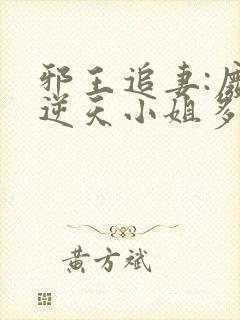 邪王追妻:
逆天小姐
黄方斌